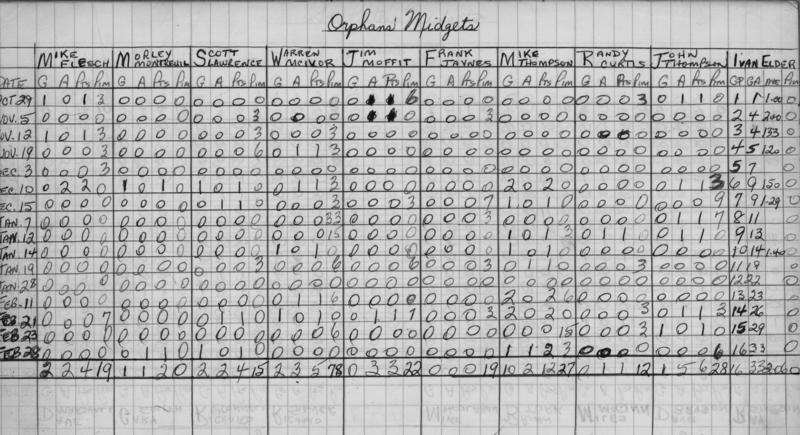 Orphans' Midgets
MIKE FLEECH MORLEY MONTREUIL SCOTT LAWRENCE WARREN MCIVOR JIM MOFFIT FRANK JAYNES MIKE THOMPSON RANDY CURTIS JOHN THOMPSON IVAN ELDER
DATE G A Pts Pim G A Pts Pim G A Pts Pim G A Pts Pim G A Pts Pim G A Pts Pim G A Pts Pim G A Pts Pim G A Pts Pim GP GA AVE Pim
OCT.29 1 0 1 3 0 0 0 0 0 0 0 0 0 0 0 0 0 1 1 6 0 0 0 0 0 0 0 0 0 0 0 3 0 1 1 0 1 1 1.00
NOV.5 0 0 0 0 0 0 0 0 0 0 0 3 0 0 0 0 0 1 1 0 0 0 0 3 0 0 0 0 0 0 0 0 0 0 0 0 2 4 2.00
NOV.12 1 0 1 3 0 0 0 0 0 0 0 3 0 0 0 3 0 0 0 0 0 0 0 0 0 0 0 0 0 0 0 0 0 0 0 0 3 4 1.33
NOV.19 0 0 0 3 0 0 0 0 0 0 0 6 0 1 1 3 0 0 0 0 0 0 0 0 0 0 0 0 0 0 0 0 0 0 0 0 4 5 1.20
DEC.3 0 0 0 3 5 7
DEC.10 0 2 2 0 1 0 1 0 1 0 1 0 0 1 1 3 0 0 0 0 0 0 0 0 2 0 2 0 0 0 0 0 0 1 1 3 6 9 1.50
DEC.15 0 0 0 0 0 0 0 0 0 1 1 0 0 0 0 3 0 0 0 3 0 0 0 7 1 0 1 0 0 0 0 0 0 0 0 9 7 9 1.29
JAN.7 0 0 0 0 0 0 0 0 0 0 0 0 0 0 0 33 0 0 0 0 0 0 0 3 0 0 0 0 0 0 0 0 0 1 1 7 8 11
JAN.12 0 0 0 0 0 0 0 0 0 0 0 0 0 0 0 15 0 0 0 0 0 0 0 0 1 0 1 3 0 1 1 0 0 1 1 0 9 13
JAN.14 0 0 0 0 0 0 0 0 0 0 0 0 1 0 1 0 0 0 0 0 0 0 0 0 1 0 1 0 0 0 0 0 0 0 0 0 10 14 1.40
JAN.19 0 0 0 0 0 0 0 0 0 0 0 3 0 0 0 6 0 0 0 6 0 0 0 3 0 1 1 0 0 0 0 3 0 0 0 0 11 19
JAN.28 0 0 0 0 12 22
FEB.11 0 0 0 0 0 0 0 0 0 0 0 0 0 1 1 6 0 0 0 0 0 0 0 0 2 0 2 6 0 0 0 0 0 0 0 0 13 23
FEB.21 0 0 0 7 0 0 0 0 0 1 1 0 1 0 1 0 0 1 1 7 0 0 0 3 2 0 2 0 0 0 0 3 0 1 1 3 14 26
FEB.23 0 0 0 0 0 0 0 0 0 0 0 0 0 0 0 6 0 0 0 0 0 0 0 0 0 0 0 15 0 0 0 3 1 0 1 0 15 29
FEB.28 0 0 0 0 0 1 1 0 1 0 1 0 0 0 0 0 0 0 0 0 0 0 0 0 1 1 2 3 0 0 0 0 0 0 0 6 16 33
2 2 4 19 1 1 2 0 2 2 4 15 2 3 5 78 0 3 3 22 0 0 0 19 10 2 12 27 0 1 1 12 1 5 6 28 16 33 2.06 0